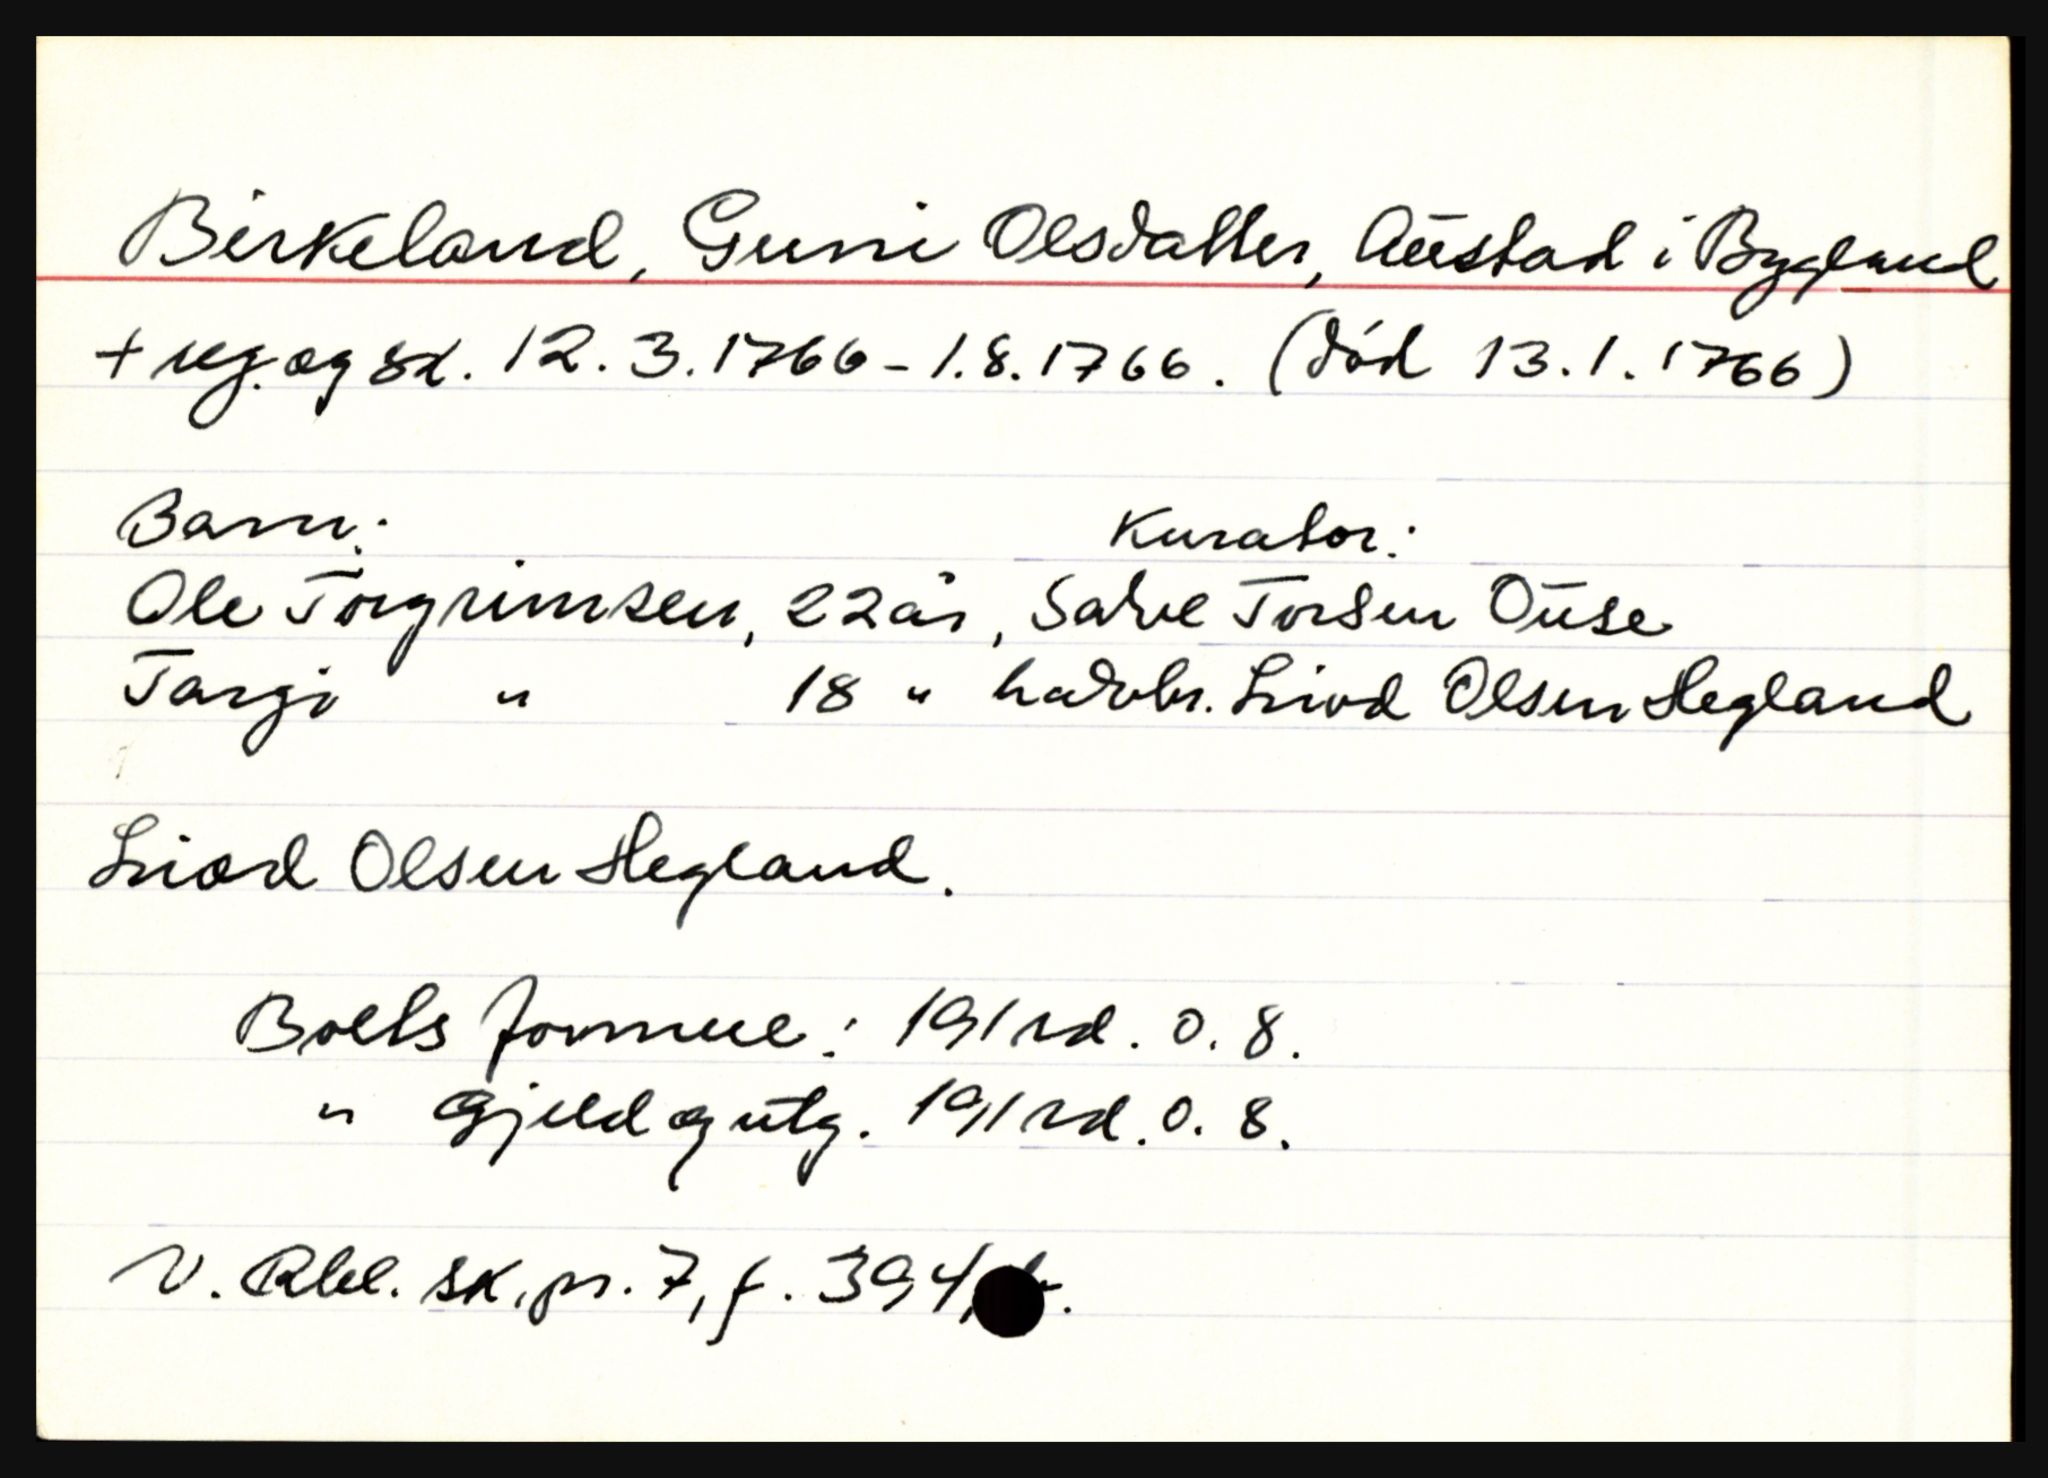 Birkeland, Guni Olsdatter, Austad i Bygland
+ reg. og sk. 12.3.1766 - 1.8.1766. (død 13.1.1766)
Barn: Kurator:
Ole Torgrimsen, 22 år, Salve Torsen Ouse
Targi " 18 " halvbr. Liod Olsen Hegland
Liod Olsen Hegland.
Boets formue: 191 rd. 0. 8.
" gjeld og utg. 191 rd. 0. 8.
V. Rbl. sk. pr. 7, f. 394,